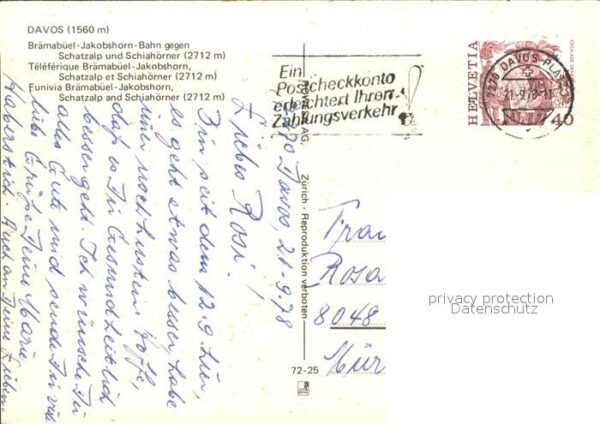 DAVOS (1560 m)
Brämabüel-Jakobshorn-Bahn gegen
Schatzalp und Schiahörner (2712 m)
Téléférique Brämabüel-Jakobshorn,
Schatzalp et Schiahörner (2712 m)
Funivia Brämabüel-Jakobshorn,
Schatzalp and Schiahörner (2712 m)
Ein
Postcheckkonto
erleichtert Ihren
Zahlungsverkehr
HELVETIA
40
7270 DAVOS PLATZ
21-9.78-11
AG, Zürich - Reproduktion verboten
72-25
7270 Davos, 21.9.78
Liebes Rosi!
Bin seit dem 12.9. hier,
es geht etwas besser, habe
immer noch husten. Hoffe,
dass es Dir Gesundheitlich
besser geht. Ich wünsche Dir
alles Gute und sende Dir viele
liebe Grüße Deine Marie
Haberstich. Auch an Deine Lieben.
Frau
Rosa
8048
Zür
privacy protection
Datenschutz